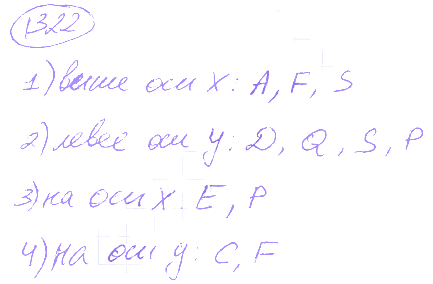 1322
1) выше оси X: A, F, S
2) левее оси y: D, Q, S, P
3) на оси X: E, P
4) на оси y: C, F